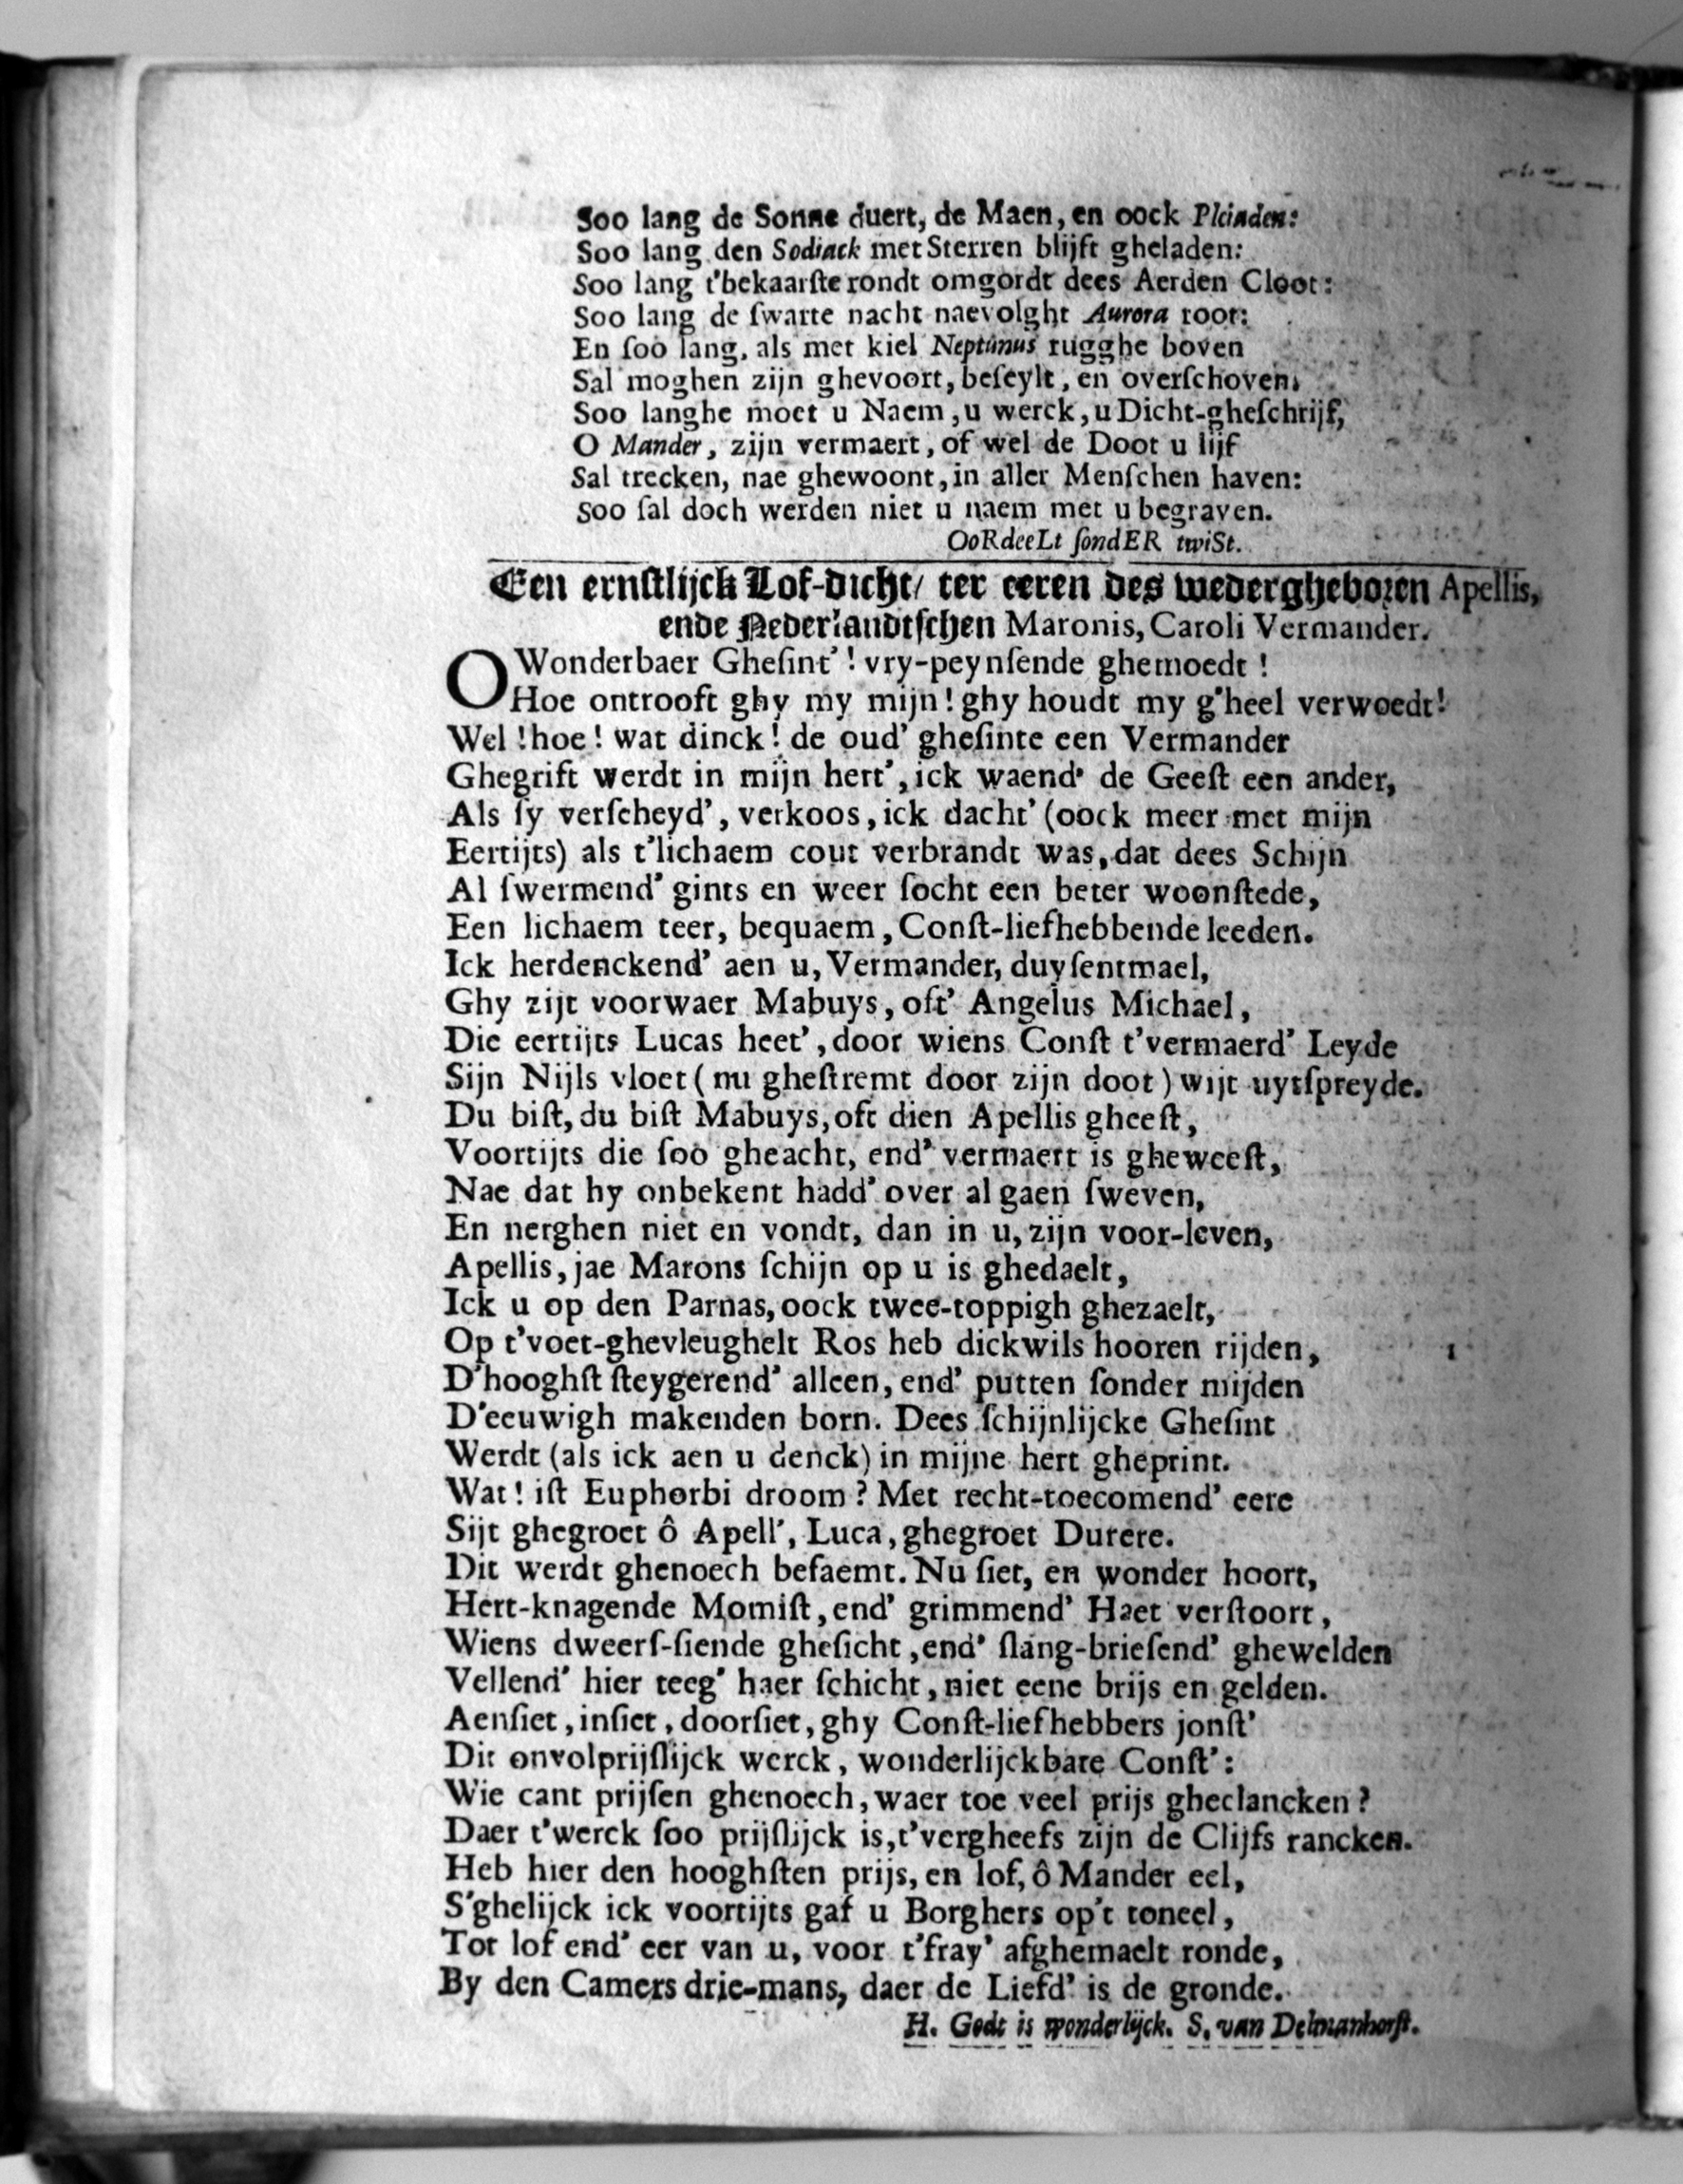 Soo lang de Sonne duert, de Maen, en oock Pleiaden:
Soo lang den Sodiack met Sterren blijft gheladen:
Soo lang t'bekaarſte rondt omgordt dees Aerden Cloot:
Soo lang de ſwarte nacht naevolght Aurora root:
En ſoo lang, als met kiel Neptunus rugghe boven
Sal moghen zijn ghevoort, beſeylt, en overſchoven,
Soo langhe moet u Naem, u werck, u Dicht-gheſchrijf,
O Mander, zijn vermaert, of wel de Doot u lijf
Sal trecken, nae ghewoont, in aller Menſchen haven:
Soo ſal doch werden niet u naem met u begraven.
OoRdeeLt ſondER twiSt.
Een ernſtlijck Lof-dicht/ ter eeren des wedergheboꝛen Apellis,
ende Nederlandtſchen Maronis, Caroli Vermander.
O Wonderbaer Gheſint'! vry-peynſende ghemoedt!
Hoe ontrooft ghy my mijn! ghy houdt my g'heel verwoedt!
Wel! hoe! wat dinck! de oud' gheſinte een Vermander
Ghegrift werdt in mijn hert', ick waend' de Geeſt een ander,
Als ſy verſcheyd', verkoos, ick dacht' (oock meer met mijn
Eertijts) als t'lichaem cout verbrandt was, dat dees Schijn
Al ſwermend' gints en weer ſocht een beter woonſtede,
Een lichaem teer, bequaem, Conſt-liefhebbende leeden.
Ick herdenckend' aen u, Vermander, duyſentmael,
Ghy zijt voorwaer Mabuys, oft' Angelus Michael,
Die eertijts Lucas heet', door wiens Conſt t'vermaerd' Leyde
Sijn Nijls vloet (nu gheſtremt door zijn doot) wijt uytſpreyde.
Du biſt, du biſt Mabuys, oft dien Apellis gheeſt,
Voortijts die ſoo gheacht, end' vermaert is gheweeſt,
Nae dat hy onbekent hadd' over al gaen ſweven,
En nerghen niet en vondt, dan in u, zijn voor-leven,
Apellis, jae Marons ſchijn op u is ghedaelt,
Ick u op den Parnas, oock twee-toppigh ghezaelt,
Op t'voet-ghevleughelt Ros heb dickwils hooren rijden,
D'hooghſt ſteygerend' alleen, end' putten ſonder mijden
D'eeuwigh makenden born. Dees ſchijnlijcke Gheſint
Werdt (als ick aen u denck) in mijne hert gheprint.
Wat! iſt Euphorbi droom? Met recht-toecomend' eere
Sijt ghegroet ô Apell', Luca, ghegroet Durere.
Dit werdt ghenoech befaemt. Nu ſiet, en wonder hoort,
Hert-knagende Momiſt, end' grimmend' Haet verſtoort,
Wiens dweerſ-ſiende gheſicht, end' ſlang-brieſend' ghewelden
Vellend' hier teeg' haer ſchicht, niet eene brijs en gelden.
Aenſiet, inſiet, doorſiet, ghy Conſt-liefhebbers jonſt'
Dit onvolprijſlijck werck, wonderlijckbare Conſt':
Wie cant prijſen ghenoech, waer toe veel prijs gheclancken?
Daer t'werck ſoo prijſlijck is, t'vergheefs zijn de Clijfs rancken.
Heb hier den hooghſten prijs, en lof, ô Mander eel,
S'ghelijck ick voortijts gaf u Borghers op't toneel,
Tot lof end' eer van u, voor t'fray' afghemaelt ronde,
By den Camers drie-mans, daer de Liefd' is de gronde.
H. Godt is wonderlijck. S. van Delmanhorſt.